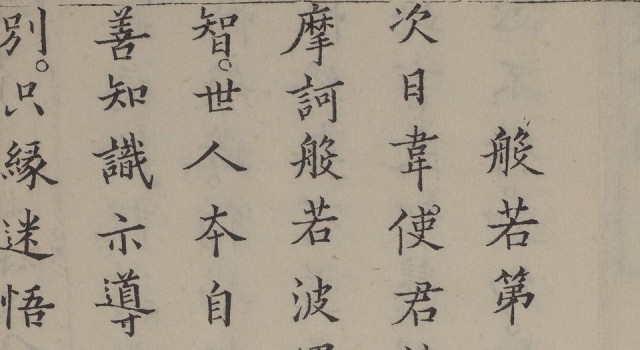 般若第
次日韋使君
摩訶般若波
智。世人本自
善知識示導
別。只縁迷悟